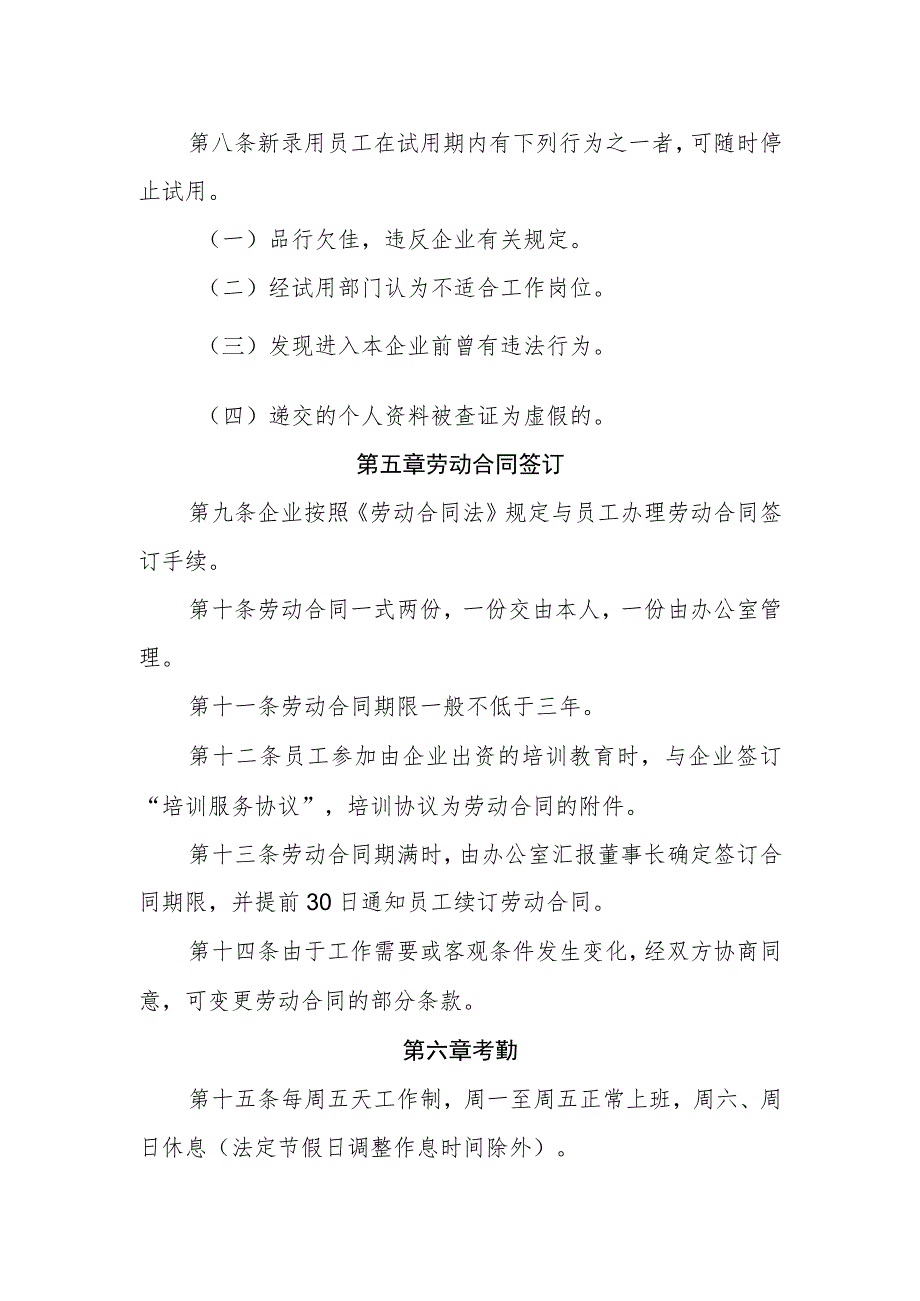 第八条新录用员工在试用期内有下列行为之一者，可随时停
止试用。
（一）品行欠佳，违反企业有关规定。
（二）经试用部门认为不适合工作岗位。
（三）发现进入本企业前曾有违法行为。
（四）递交的个人资料被查证为虚假的。
第五章劳动合同签订
第九条企业按照《劳动合同法》规定与员工办理劳动合同签
订手续。
第十条劳动合同一式两份，一份交由本人，一份由办公室管
理。
第十一条劳动合同期限一般不低于三年。
第十二条员工参加由企业出资的培训教育时，与企业签订
“培训服务协议”，培训协议为劳动合同的附件。
第十三条劳动合同期满时，由办公室汇报董事长确定签订合
同期限，并提前30日通知员工续订劳动合同。
第十四条由于工作需要或客观条件发生变化，经双方协商同
意，可变更劳动合同的部分条款。
第六章考勤
第十五条每周五天工作制，周一至周五正常上班，周六、周
日休息（法定节假日调整作息时间除外）。